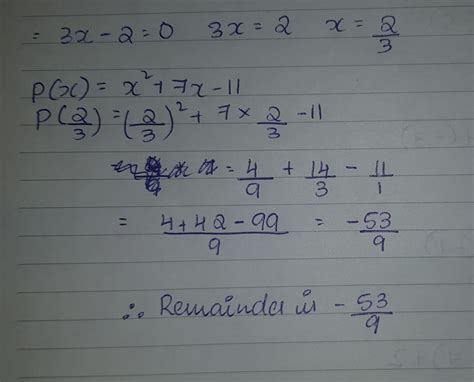 = 3x - 2 = 0 3x = 2 x = 2/3
p(x) = x² + 7x - 11
P(2/3) = (2/3)² + 7 × 2/3 - 11
= 4/9 + 14/3 - 11/1
= (4 + 42 - 99)/9 = -53/9
∴ Remainder is - 53/9